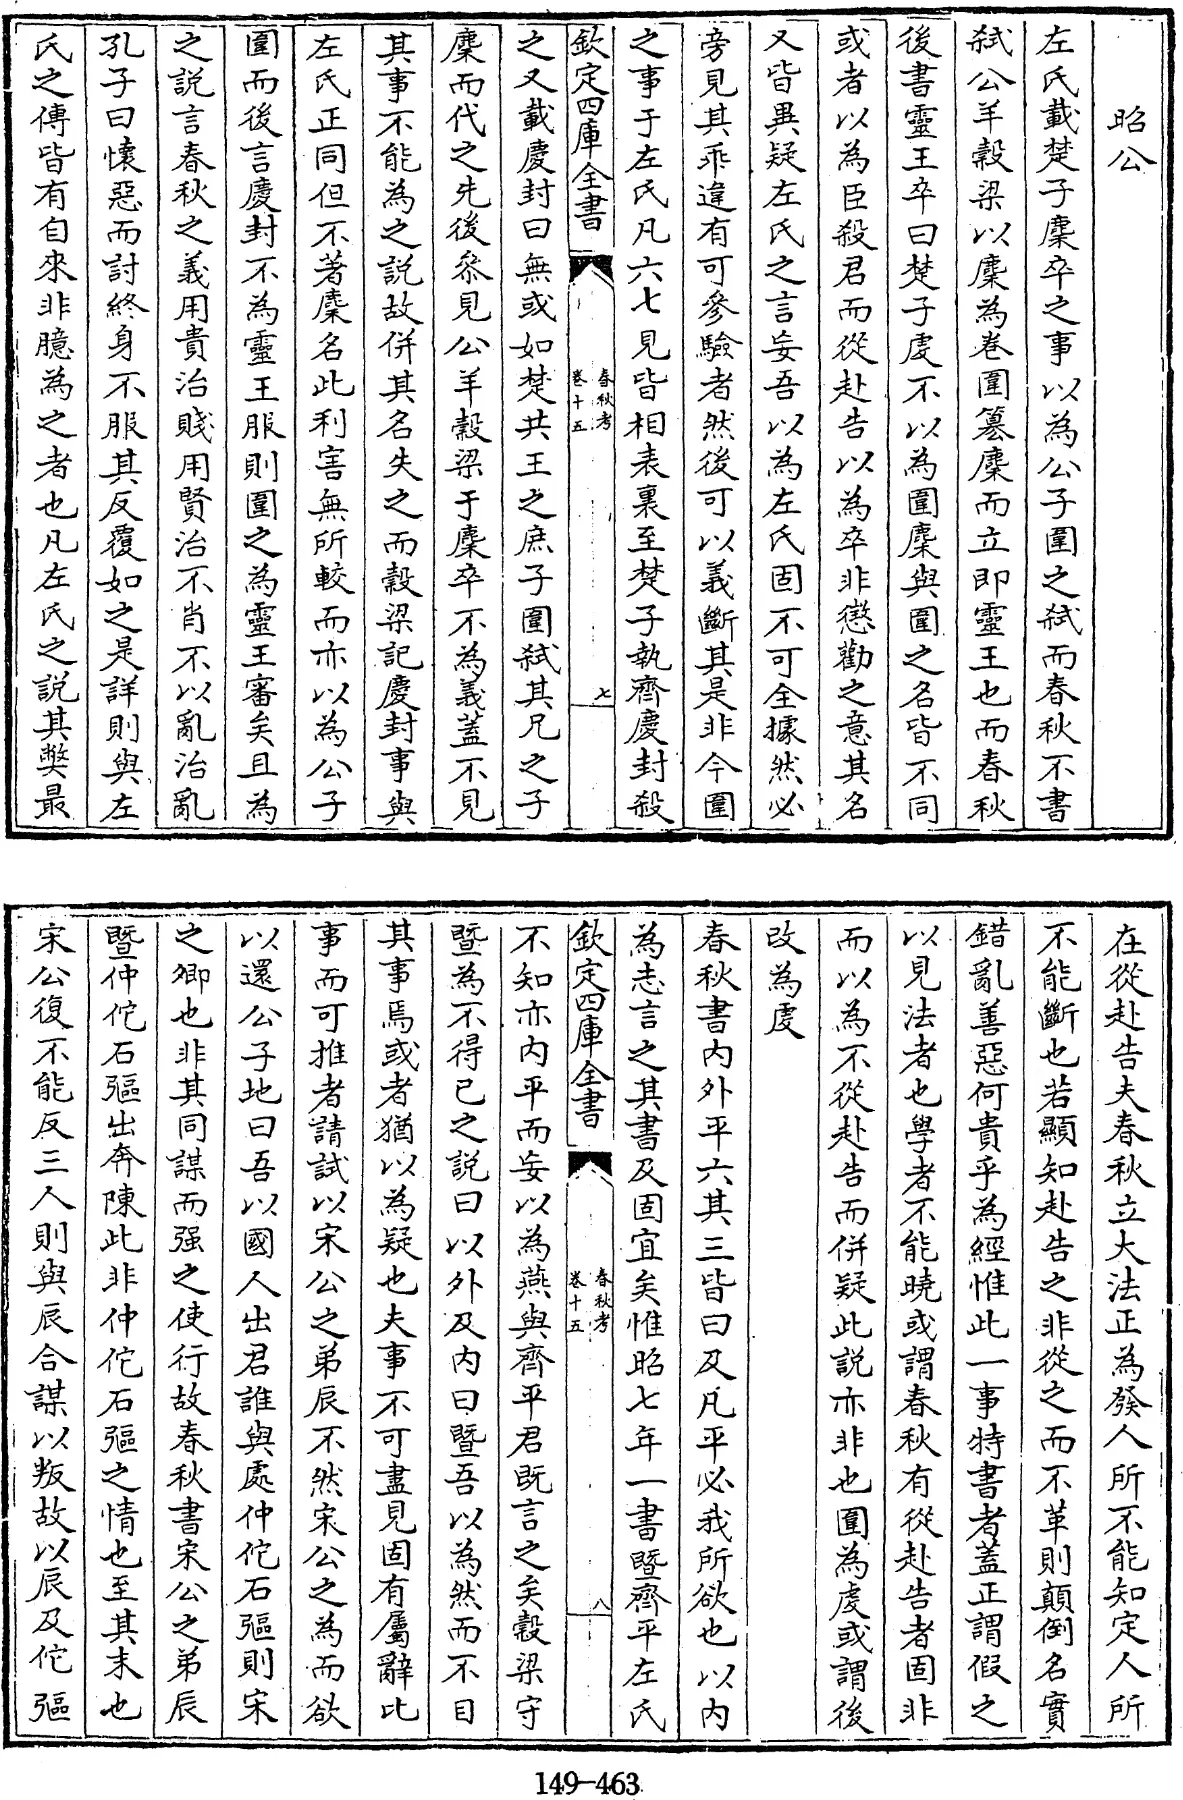 昭公
左氏載楚子麇卒之事以為公子圍之弑而春秋不書
弑公羊穀梁以麇為卷圍簒麇而立即靈王也而春秋
後書靈王卒曰楚子虔不以為圍麇與圍之名皆不同
或者以為臣殺君而從赴告以為卒非懲勸之意其名
又皆異疑左氏之言妄吾以為左氏固不可全據然必
旁見其乖違有可參驗者然後可以義斷其是非今圍
之事于左氏凡六七見皆相表裏至楚子執齊慶封殺
欽定四庫全書
春秋考
卷十五
七
之又載慶封曰無或如楚共王之庶子圍弑其兄之子
麇而代之先後叅見公羊穀梁于麇卒不為義蓋不見
其事不能為之説故併其名失之而穀梁記慶封事與
左氏正同但不著麇名此利害無所較而亦以為公子
圍而後言慶封不為靈王服則圍之為靈王審矣且為
之説言春秋之義用貴治賤用賢治不肖不以亂治亂
孔子曰懐惡而討終身不服其反覆如之是詳則與左
氏之傳皆有自來非臆為之者也凡左氏之説其獘最
在從赴告夫春秋立大法正為發人所不能知定人所
不能斷也若顯知赴告之非從之而不革則顛倒名實
錯亂善惡何貴乎為經惟此一事特書者蓋正謂假之
以見法者也學者不能曉或謂春秋有從赴告者固非
而以為不從赴告而併疑此説亦非也圍為虔或謂後
改為虔
春秋書内外平六其三皆曰及凡平必我所欲也以内
為志言之其書及固宜矣惟昭七年一書暨齊平左氏
欽定四庫全書
春秋考
卷十五
八
不知亦内平而妄以為燕與齊平君既言之矣穀梁守
暨為不得已之説曰以外及内曰暨吾以為然而不目
其事焉或者猶以為疑也夫事不可盡見固有屬辭比
事而可推者請試以宋公之弟辰不然宋公之為而欲
以還公子地曰吾以國人出君誰與處仲佗石彄則宋
之卿也非其同謀而强之使行故春秋書宋公之弟辰
暨仲佗石彄出奔陳此非仲佗石彄之情也至其末也
宋公復不能反三人則與辰合謀以叛故以辰及佗彄
149-463